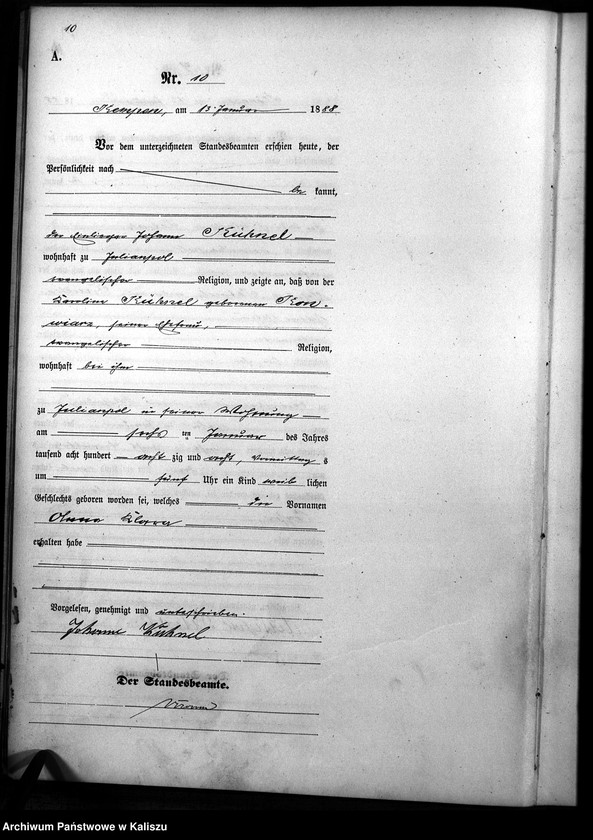 10
A.
Nr. 10
Kempen, am 13. Januar 1888
Vor dem unterzeichneten Standesbeamten erschien heute, der
Persönlichkeit nach
be kannt,
der Johann Kühnel
wohnhaft zu Julianpol
evangelischer Religion, und zeigte an, daß von der
Karoline Kühnel geborenen Kon-
wiarz, seiner Ehefrau,
evangelischer Religion,
wohnhaft bei ihm
zu Julianpol in seiner Wohnung
am sechs ten Januar des Jahres
tausend acht hundert acht zig und acht, Vormittag s
um fünf Uhr ein Kind weib lichen
Geschlechts geboren worden sei, welches die Vornamen
Anna Klara
erhalten habe
Vorgelesen, genehmigt und unterschrieben.
Johann Kühnel
Der Standesbeamte.
Archiwum Państwowe w Kaliszu